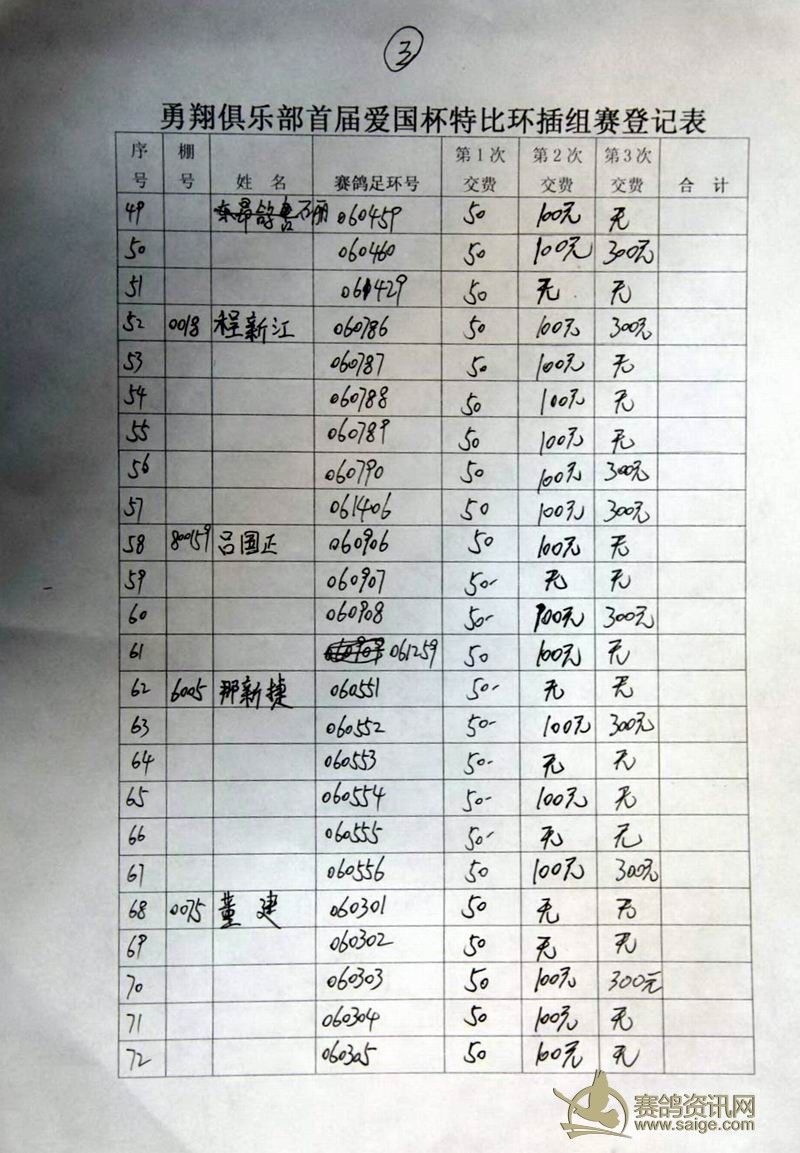 3
勇翔俱乐部首届爱国杯特比环插组赛登记表
序号 棚号 姓 名 赛鸽足环号 第1次交费 第2次交费 第3次交费 合 计
49 060459 50 100元 无
50 060460 50 100元 300元
51 061429 50 无 无
52 0018 程新江 060786 50 100元 300元
53 060787 50 100元 无
54 060788 50 100元 无
55 060789 50 100元 无
56 060790 50 100元 300元
57 061406 50 100元 300元
58 800159 吕国正 060906 50 100元 无
59 060907 50- 无 无
60 060908 50- 100元 300元
61 061259 50 100元 无
62 6005 那新捷 060551 50- 无 无
63 060552 50- 100元 300元
64 060553 50- 无 无
65 060554 50- 100元 无
66 060555 50- 无 无
67 060556 50 100元 300元
68 0075 董建 060301 50 无 无
69 060302 50 无 无
70 060303 50 100元 300元
71 060304 50 100元 无
72 060305 50 100元 无
赛鸽资讯网
www.saige.com